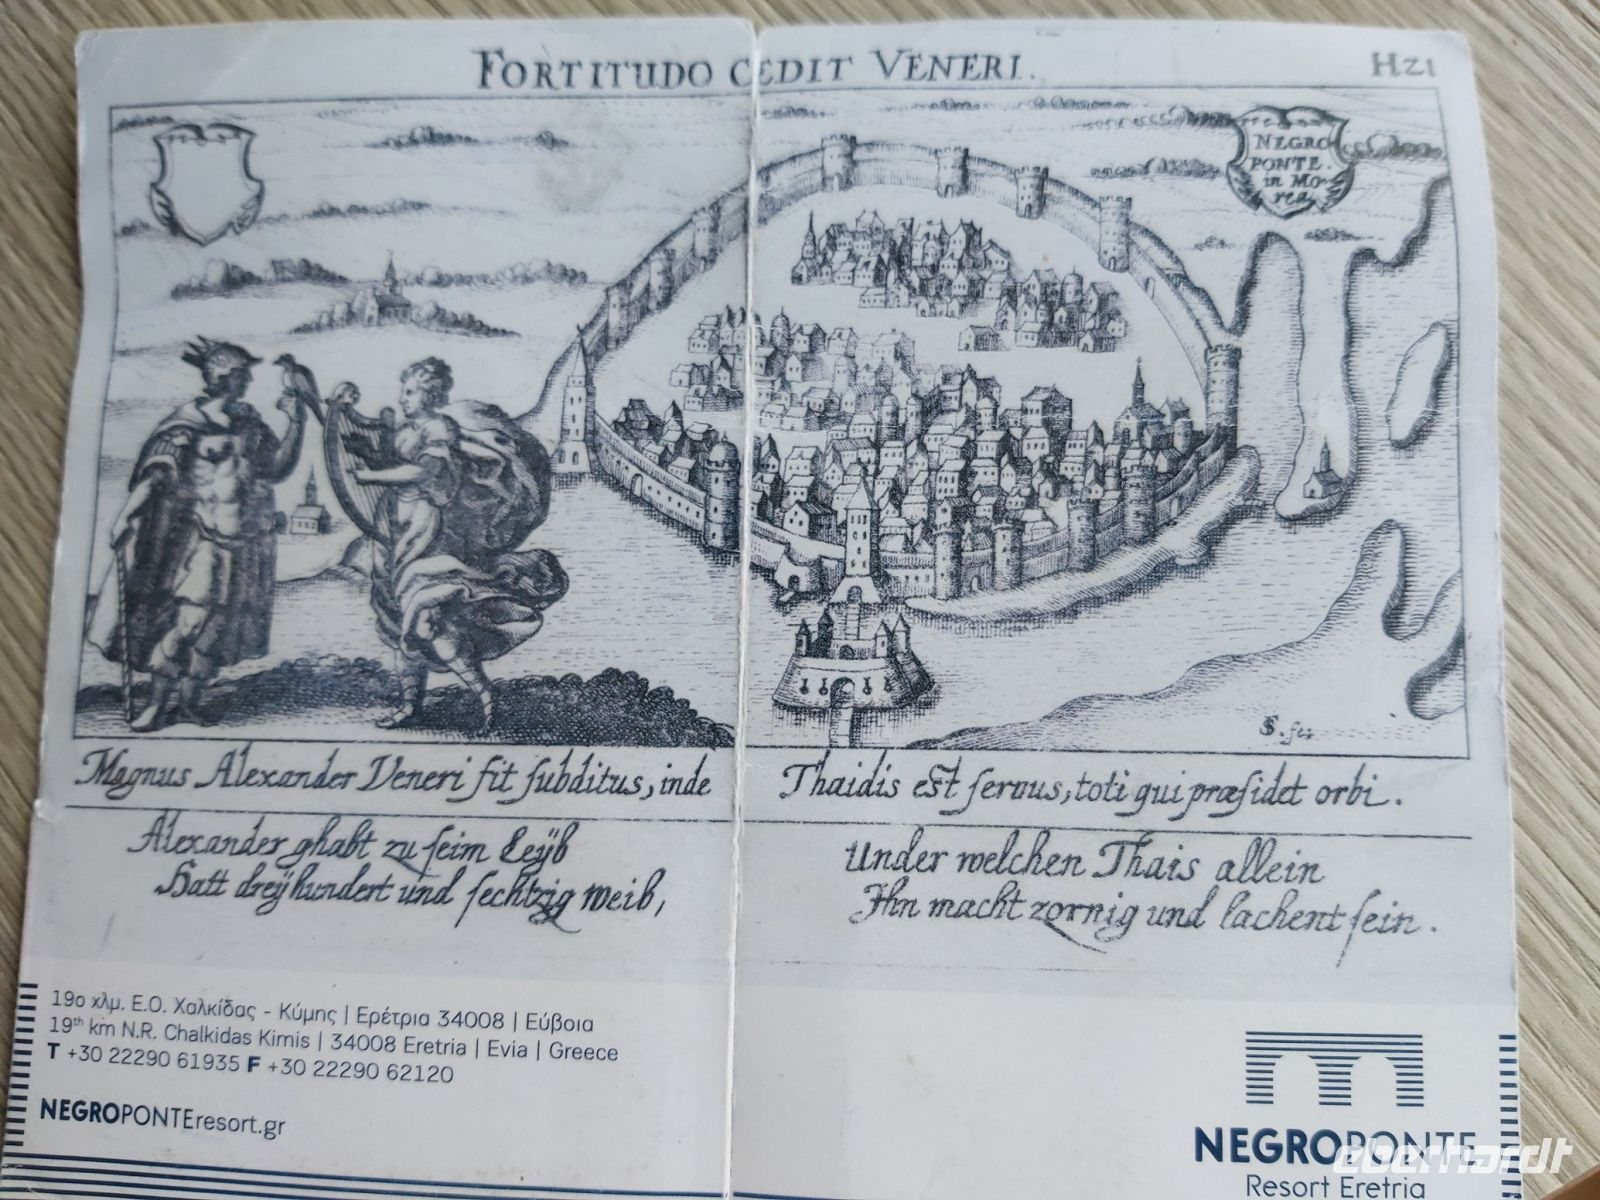 FORTITUDO CEDIT VENERI.
H21
NEGRO
PONTE.
in Mo-
rea
S. fec
Magnus Alexander Veneri fit ſubditus, inde
Thaidis est ſeruus, toti qui præſidet orbi.
Alexander ghabt zu ſeim Leÿb
Hatt dreÿhundert und ſechtzig weib,
Under welchen Thais allein
Ihn macht zornig und lachent ſein.
19ο χλμ. Ε.Ο. Χαλκίδας - Κύμης | Ερέτρια 34008 | Εύβοια
19th km N.R. Chalkidas Kimis | 34008 Eretria | Evia | Greece
T +30 22290 61935 F +30 22290 62120
NEGROPONTEresort.gr
NEGROPONTE
Resort Eretria
eberhardt